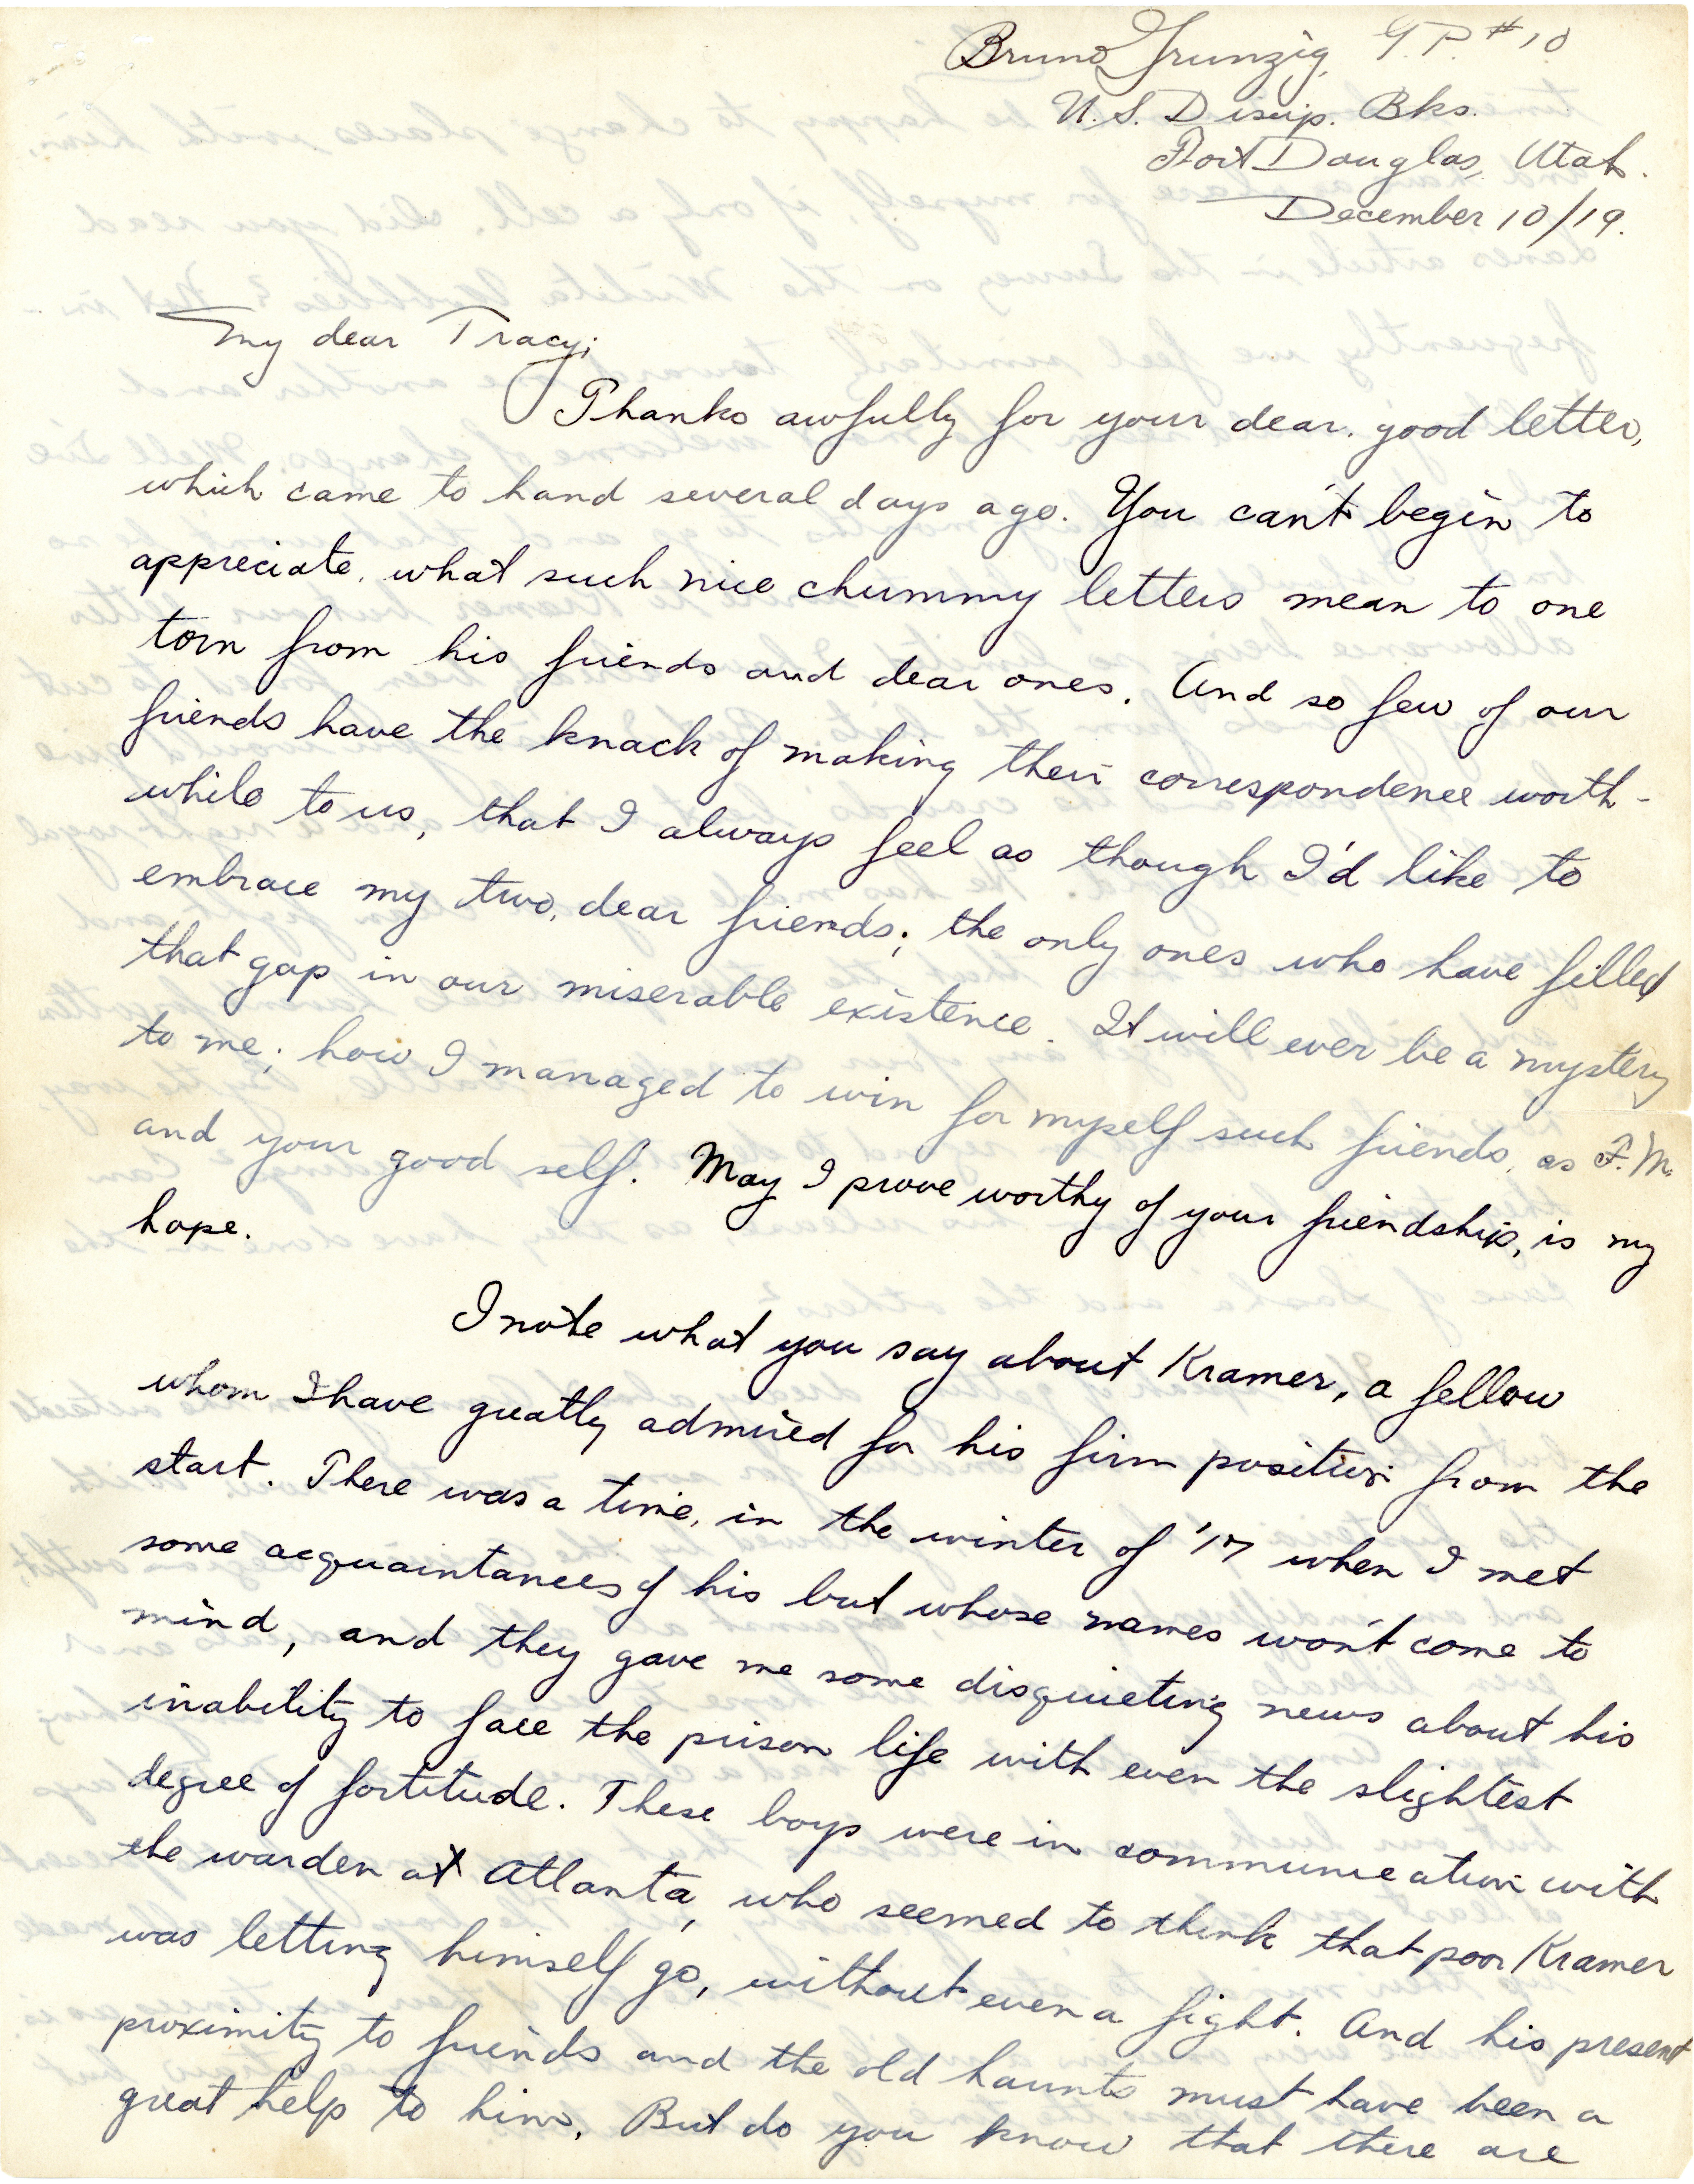 Bruno Grunzig, G.P. #10
U.S. Discip. Bks.
Fort Douglas, Utah.
December 10/19.
My dear Tracy;
Thanks awfully for your dear, good letter,
which came to hand several days ago. You can't begin to
appreciate, what such nice chummy letters mean to one
torn from his friends and dear ones. And so few of our
friends have the knack of making their correspondence worth-
while to us, that I always feel as though I'd like to
embrace my two, dear friends; the only ones who have filled
that gap in our miserable existence. It will ever be a mystery
to me; how I managed to win for myself such friends, as F.M.
and your good self. May I prove worthy of your friendship, is my
hope.
I note what you say about Kramer, a fellow
whom I have greatly admired for his firm position from the
start. There was a time, in the winter of '17 when I met
some acquaintances of his but whose names won't come to
mind, and they gave me some disquieting news about his
inability to face the prison life with even the slightest
degree of fortitude. These boys were in communication with
the warden at Atlanta, who seemed to think that poor Kramer
was letting himself go, without even a fight. And his present
proximity to friends and the old haunts must have been a
great help to him. But do you know that there are